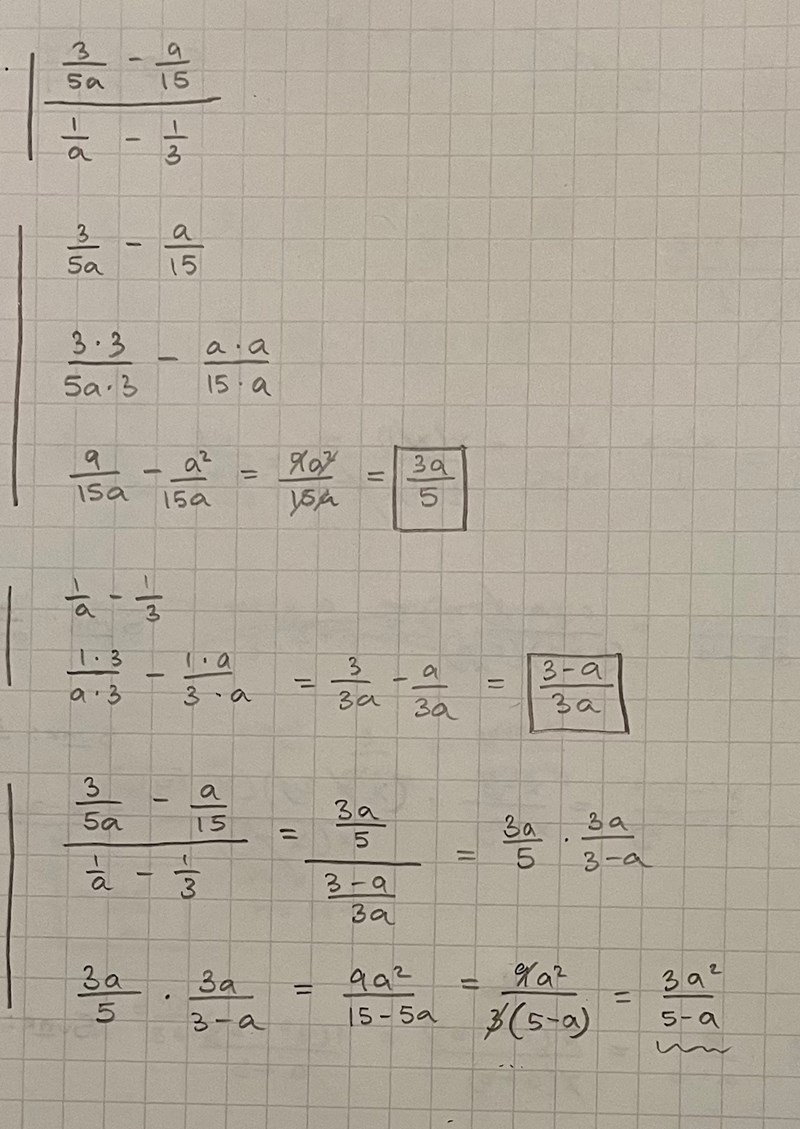 (3/(5a) - a/15) / (1/a - 1/3)
3/(5a) - a/15
(3·3)/(5a·3) - (a·a)/(15·a)
9/(15a) - a²/(15a) = 9a²/(15a) = 3a/5
1/a - 1/3
(1·3)/(a·3) - (1·a)/(3·a) = 3/(3a) - a/(3a) = (3-a)/(3a)
(3/(5a) - a/15) / (1/a - 1/3) = (3a/5) / ((3-a)/(3a)) = 3a/5 · 3a/(3-a)
3a/5 · 3a/(3-a) = 9a²/(15-5a) = 9a²/(3(5-a)) = 3a²/(5-a)